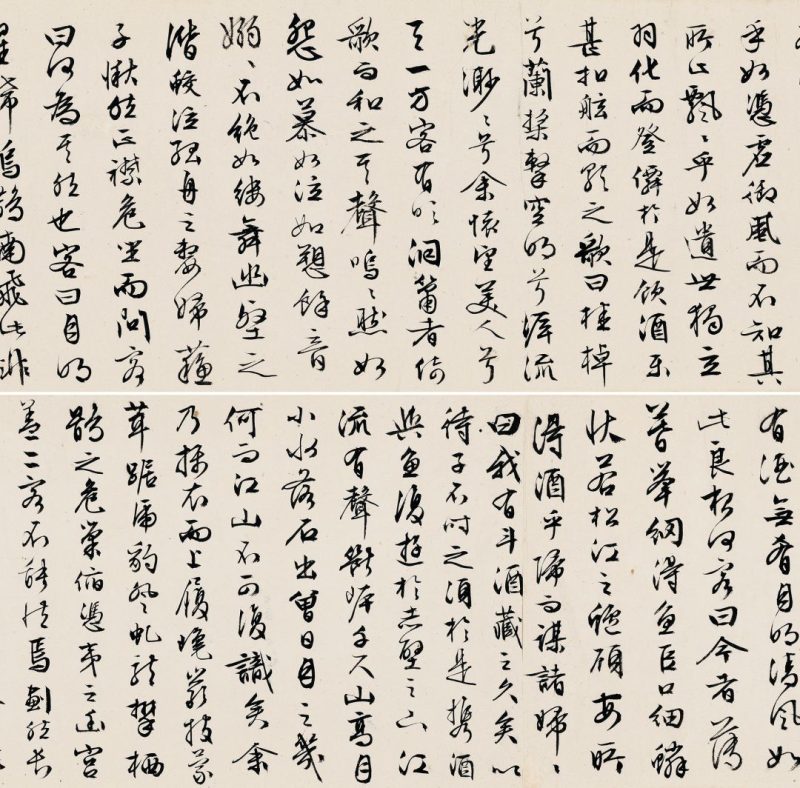 乎如憑虛御風而不知其
所止飄〻乎如遺世獨立
羽化而登僊於是飲酒樂
甚扣舷而歌之歌曰桂棹
兮蘭槳擊空明兮泝流
光渺〻兮余懷望美人兮
天一方客有吹洞簫者倚
歌而和之其聲嗚〻然如
怨如慕如泣如愬餘音
嫋〻不絕如縷舞幽壑之
潛蛟泣孤舟之嫠婦蘇
子愀然正襟危坐而問客
曰何為其然也客曰月明
星希烏鵲南飛此非
有酒無肴月明清風如
此良夜何客曰今者薄
暮舉網得魚巨口細鱗
狀若松江之鱸顧安所
得酒乎歸而謀諸婦〻
曰我有斗酒藏之久矣以
待子不時之須於是攜酒
與魚復遊於赤壁之下江
流有聲斷岸千尺山高月
小水落石出曾日月之幾
何而江山不可復識矣余
乃攝衣而上履巉巖披蒙
茸踞虎豹登虬龍攀栖
鶻之危巢俯憑夷之幽宮
蓋二客不能從焉劃然長